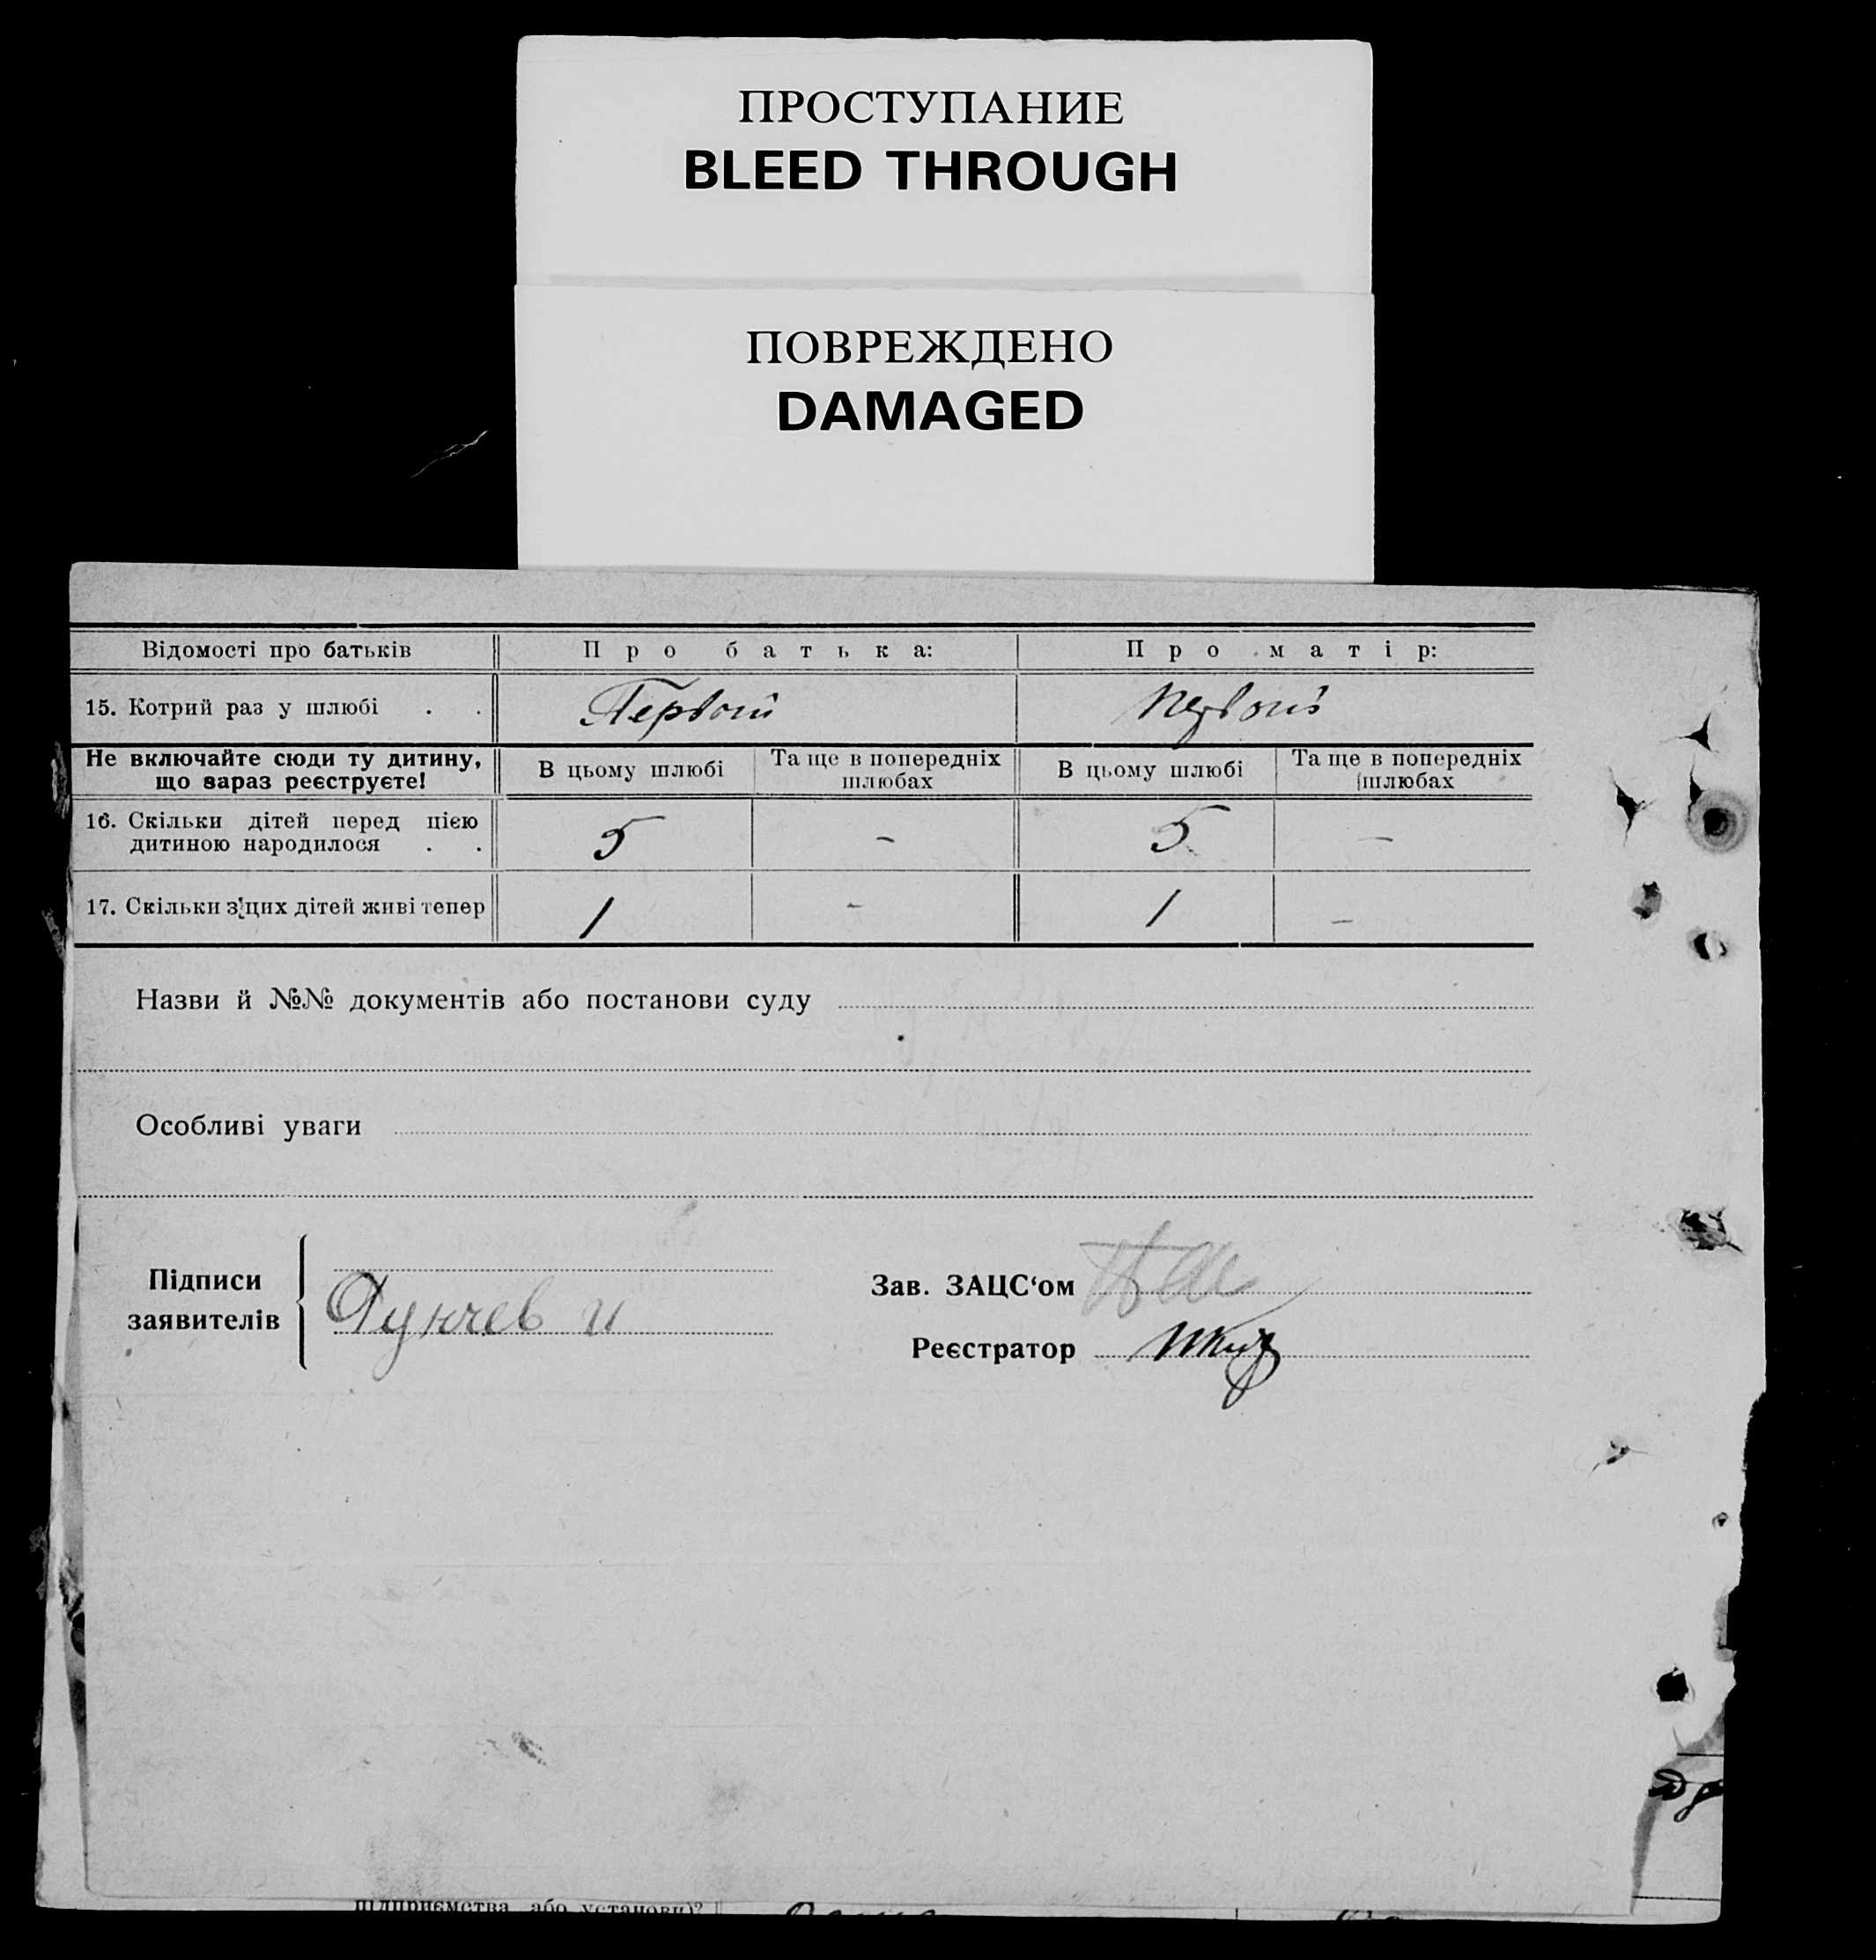 ПРОСТУПАНИЕ
BLEED THROUGH
ПОВРЕЖДЕНО
DAMAGED
Відомості про батьків Про батька: Про матір:
15. Котрий раз у шлюбі . . Первый Первый
Не включайте сюди ту дитину, що зараз реєструєте! В цьому шлюбі Та ще в попередніх шлюбах В цьому шлюбі Та ще в попередніх шлюбах
16. Скільки дітей перед цією
дитиною народилося . . 5 – 5 –
17. Скільки з цих дітей живі тепер 1 – 1 –
Назви й №№ документів або постанови суду
Особливі уваги
Підписи
заявителів
Зав. ЗАЦС‘ом
Реєстратор
підприємства або установи)?